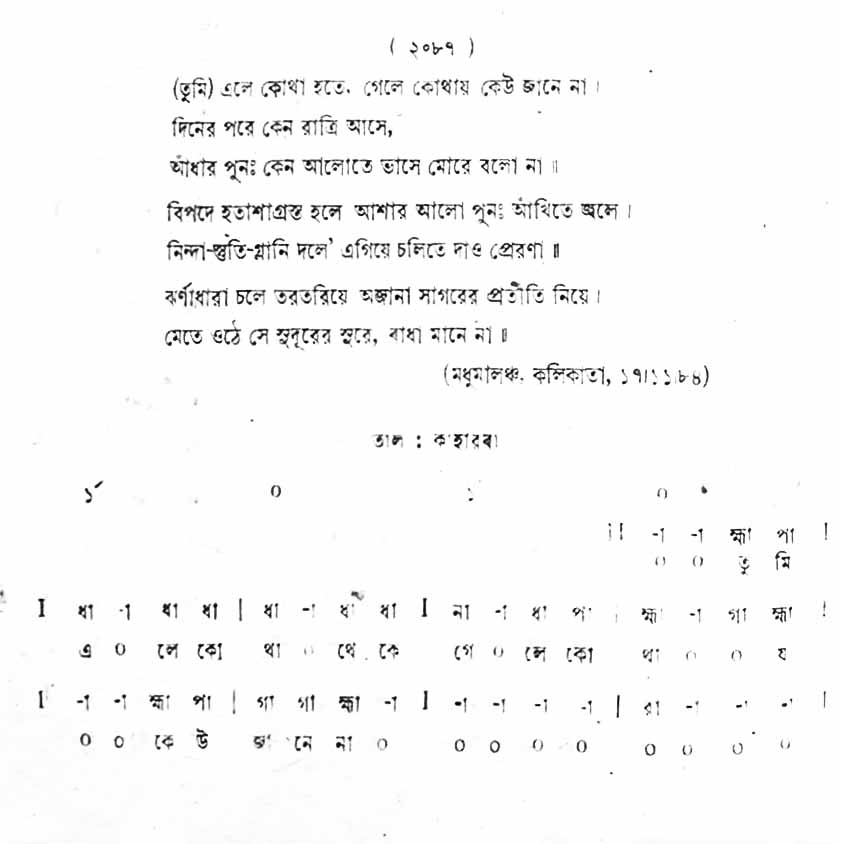 ( ২০৮৭ )
(তুমি) এলে কোথা হতে, গেলে কোথায় কেউ জানে না ।
দিনের পরে কেন রাত্রি আসে,
আঁধার পুনঃ কেন আলোতে ভাসে মোরে বলো না ॥
বিপদে হতাশাগ্রস্ত হলে আশার আলো পুনঃ আঁখিতে জ্বলে ।
নিন্দা-স্তুতি-গ্লানি দলে' এগিয়ে চলিতে দাও প্রেরণা ॥
ঝর্ণাধারা চলে তরতরিয়ে অজানা সাগরের প্রতীতি নিয়ে ।
মেতে ওঠে সে সুদূরের সুরে, বাধা মানে না ॥
(মধুমালঞ্চ, কলিকাতা, ১৭।১১।৮৪)
তাল : কাহারবা
১´ ০ ১ ০
II -া -া হ্মা পা I
০ ০ তু মি
I ধা -া ধা ধা | ধা -া ধা ধা I না -া ধা পা | হ্মা -া গা হ্মা I
এ ০ লে কো থা ০ থে কে গে ০ লে কো থা ০ ০ য
I -া -া হ্মা পা | গা গা হ্মা -া I -া -া -া -া | রা -া -া -া I
০ ০ কে উ জা নে না ০ ০ ০ ০ ০ ০ ০ ০ ০